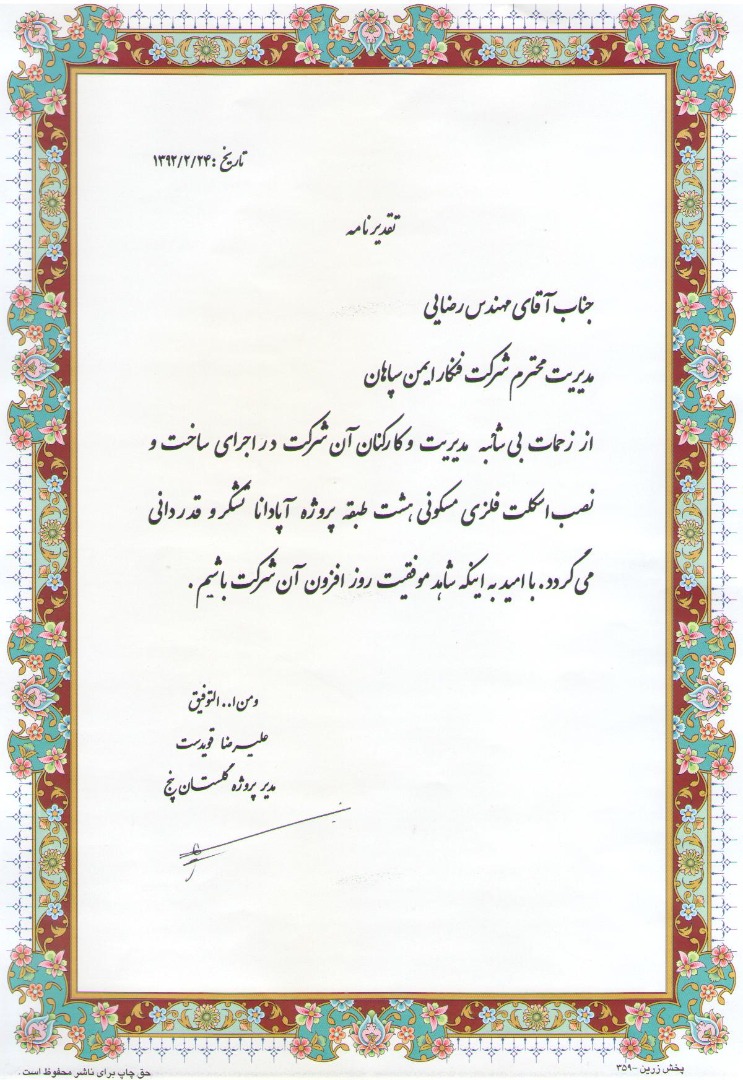 تاریخ : ۱۳۹۲/۲/۲۴
تقدیرنامه
جناب آقای مهندس رضایی
مدیریت محترم شرکت فنکار ایمن سپاهان
از زحمات بی شائبه مدیریت و کارکنان آن شرکت در اجرای ساخت و
نصب اسکلت فلزی مسکونی هشت طبقه پروژه آپادانا تشکر و قدردانی
می گردد. با امید به اینکه شاهد موفقیت روز افزون آن شرکت باشیم .
ومن ا.. التوفیق
علیرضا قویدست
مدیر پروژه گلستان پنج
پخش زرین -۳۵۹
حق چاپ برای ناشر محفوظ است .